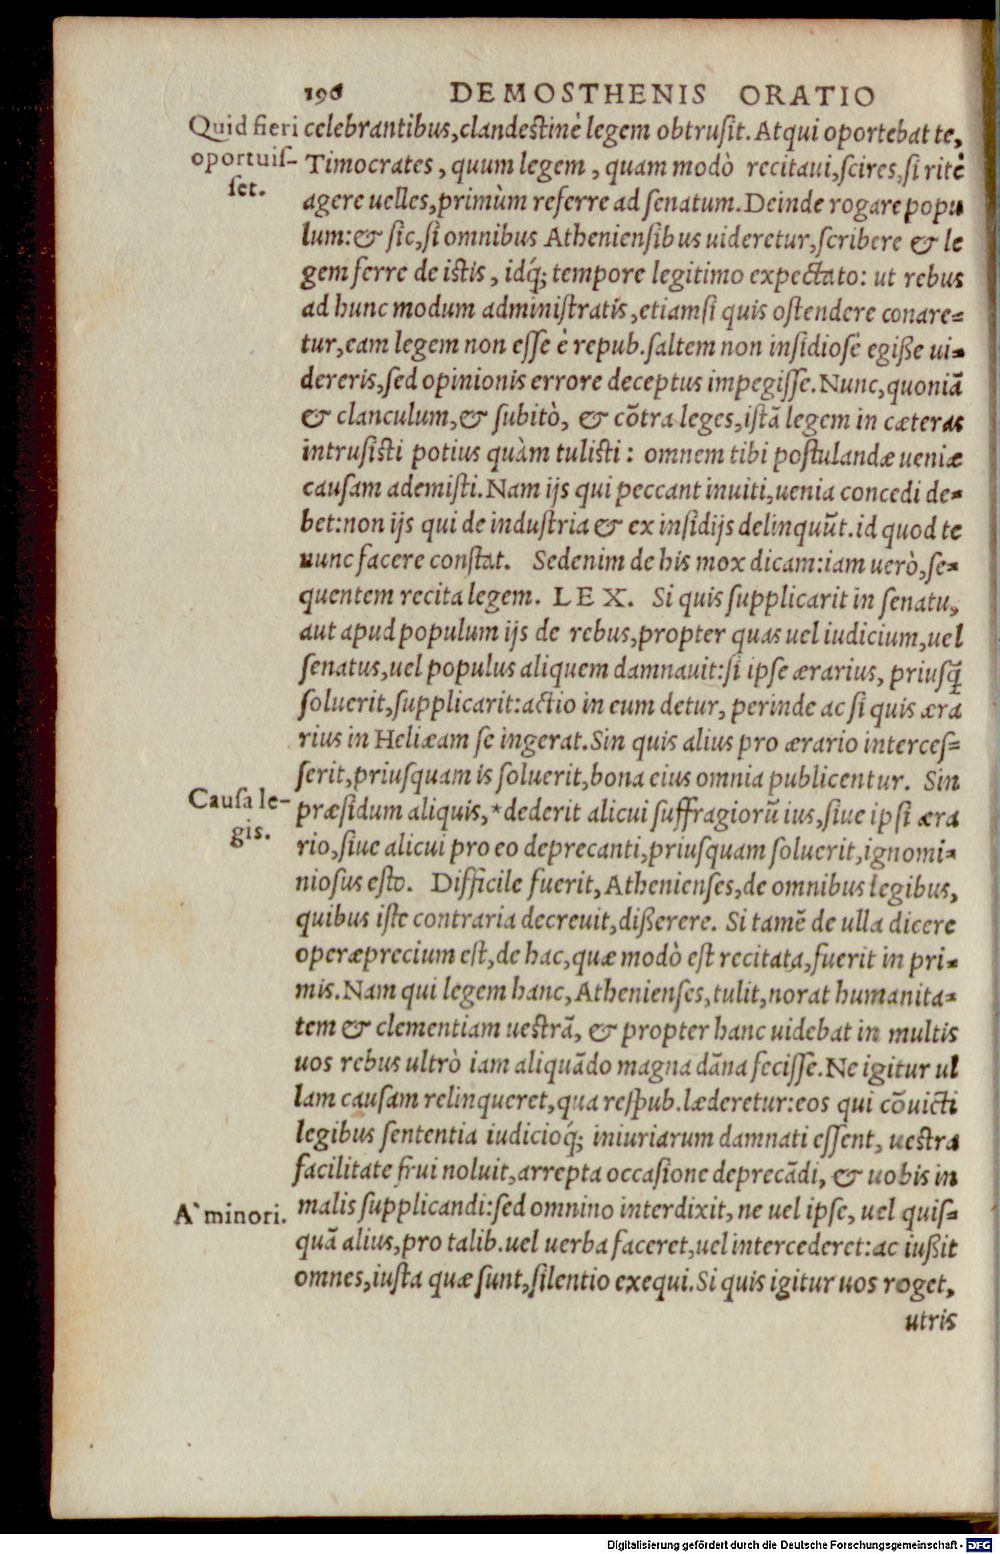 196 DEMOSTHENIS ORATIO
Quid fieri
oportuis-
set.
celebrantibus, clandestinè legem obtrusit. Atqui oportebat te,
Timocrates, quum legem, quam modò recitaui, scires, si ritè
agere uelles, primùm referre ad senatum. Deinde rogare popu
lum: & sic, si omnibus Atheniensibus uideretur, scribere & le
gem ferre de istis, idq́; tempore legitimo expectato: ut rebus
ad hunc modum administratis, etiamsi quis ostendere conare=
tur, eam legem non esse è repub. saltem non insidiosè egiße ui=
dereris, sed opinionis errore deceptus impegisse. Nunc, quoniã
& clanculum, & subitò, & cõtra leges, istã legem in cæteras
intrusisti potius quàm tulisti: omnem tibi postulandæ ueniæ
causam ademisti. Nam ijs qui peccant inuiti, uenia concedi de=
bet: non ijs qui de industria & ex insidijs delinquũt. id quod te
nunc facere constat. Sed enim de his mox dicam: iam uerò, se=
quentem recita legem. LEX. Si quis supplicarit in senatu,
aut apud populum ijs de rebus, propter quas uel iudicium, uel
senatus, uel populus aliquem damnauit: si ipse ærarius, priusq̃
soluerit, supplicarit: actio in eum detur, perinde ac si quis æra
rius in Heliæam se ingerat. Sin quis alius pro ærario interces=
serit, priusquam is soluerit, bona eius omnia publicentur. Sin
Causa le-
gis.
præsidum aliquis, * dederit alicui suffragiorũ ius, siue ipsi æra
rio, siue alicui pro eo deprecanti, priusquam soluerit, ignomi=
niosus esto. Difficile fuerit, Athenienses, de omnibus legibus,
quibus iste contraria decreuit, dißerere. Si tamẽ de ulla dicere
operæprecium est, de hac, quæ modò est recitata, fuerit in pri=
mis. Nam qui legem hanc, Athenienses, tulit, norat humanita=
tem & clementiam uestrã, & propter hanc uidebat in multis
uos rebus ultrò iam aliquãdo magna dãna fecisse. Ne igitur ul
lam causam relinqueret, qua respub. læderetur: eos qui cõuicti
legibus sententia iudicioq́; iniuriarum damnati essent, uestra
facilitate frui noluit, arrepta occasione deprecãdi, & uobis in
A` minori.
malis supplicandi: sed omnino interdixit, ne uel ipse, uel quis=
quã alius, pro talib. uel uerba faceret, uel intercederet: ac iußit
omnes, iusta quæ sunt, silentio exequi. Si quis igitur uos roget,
utris
Digitalisierung gefördert durch die Deutsche Forschungsgemeinschaft - DFG